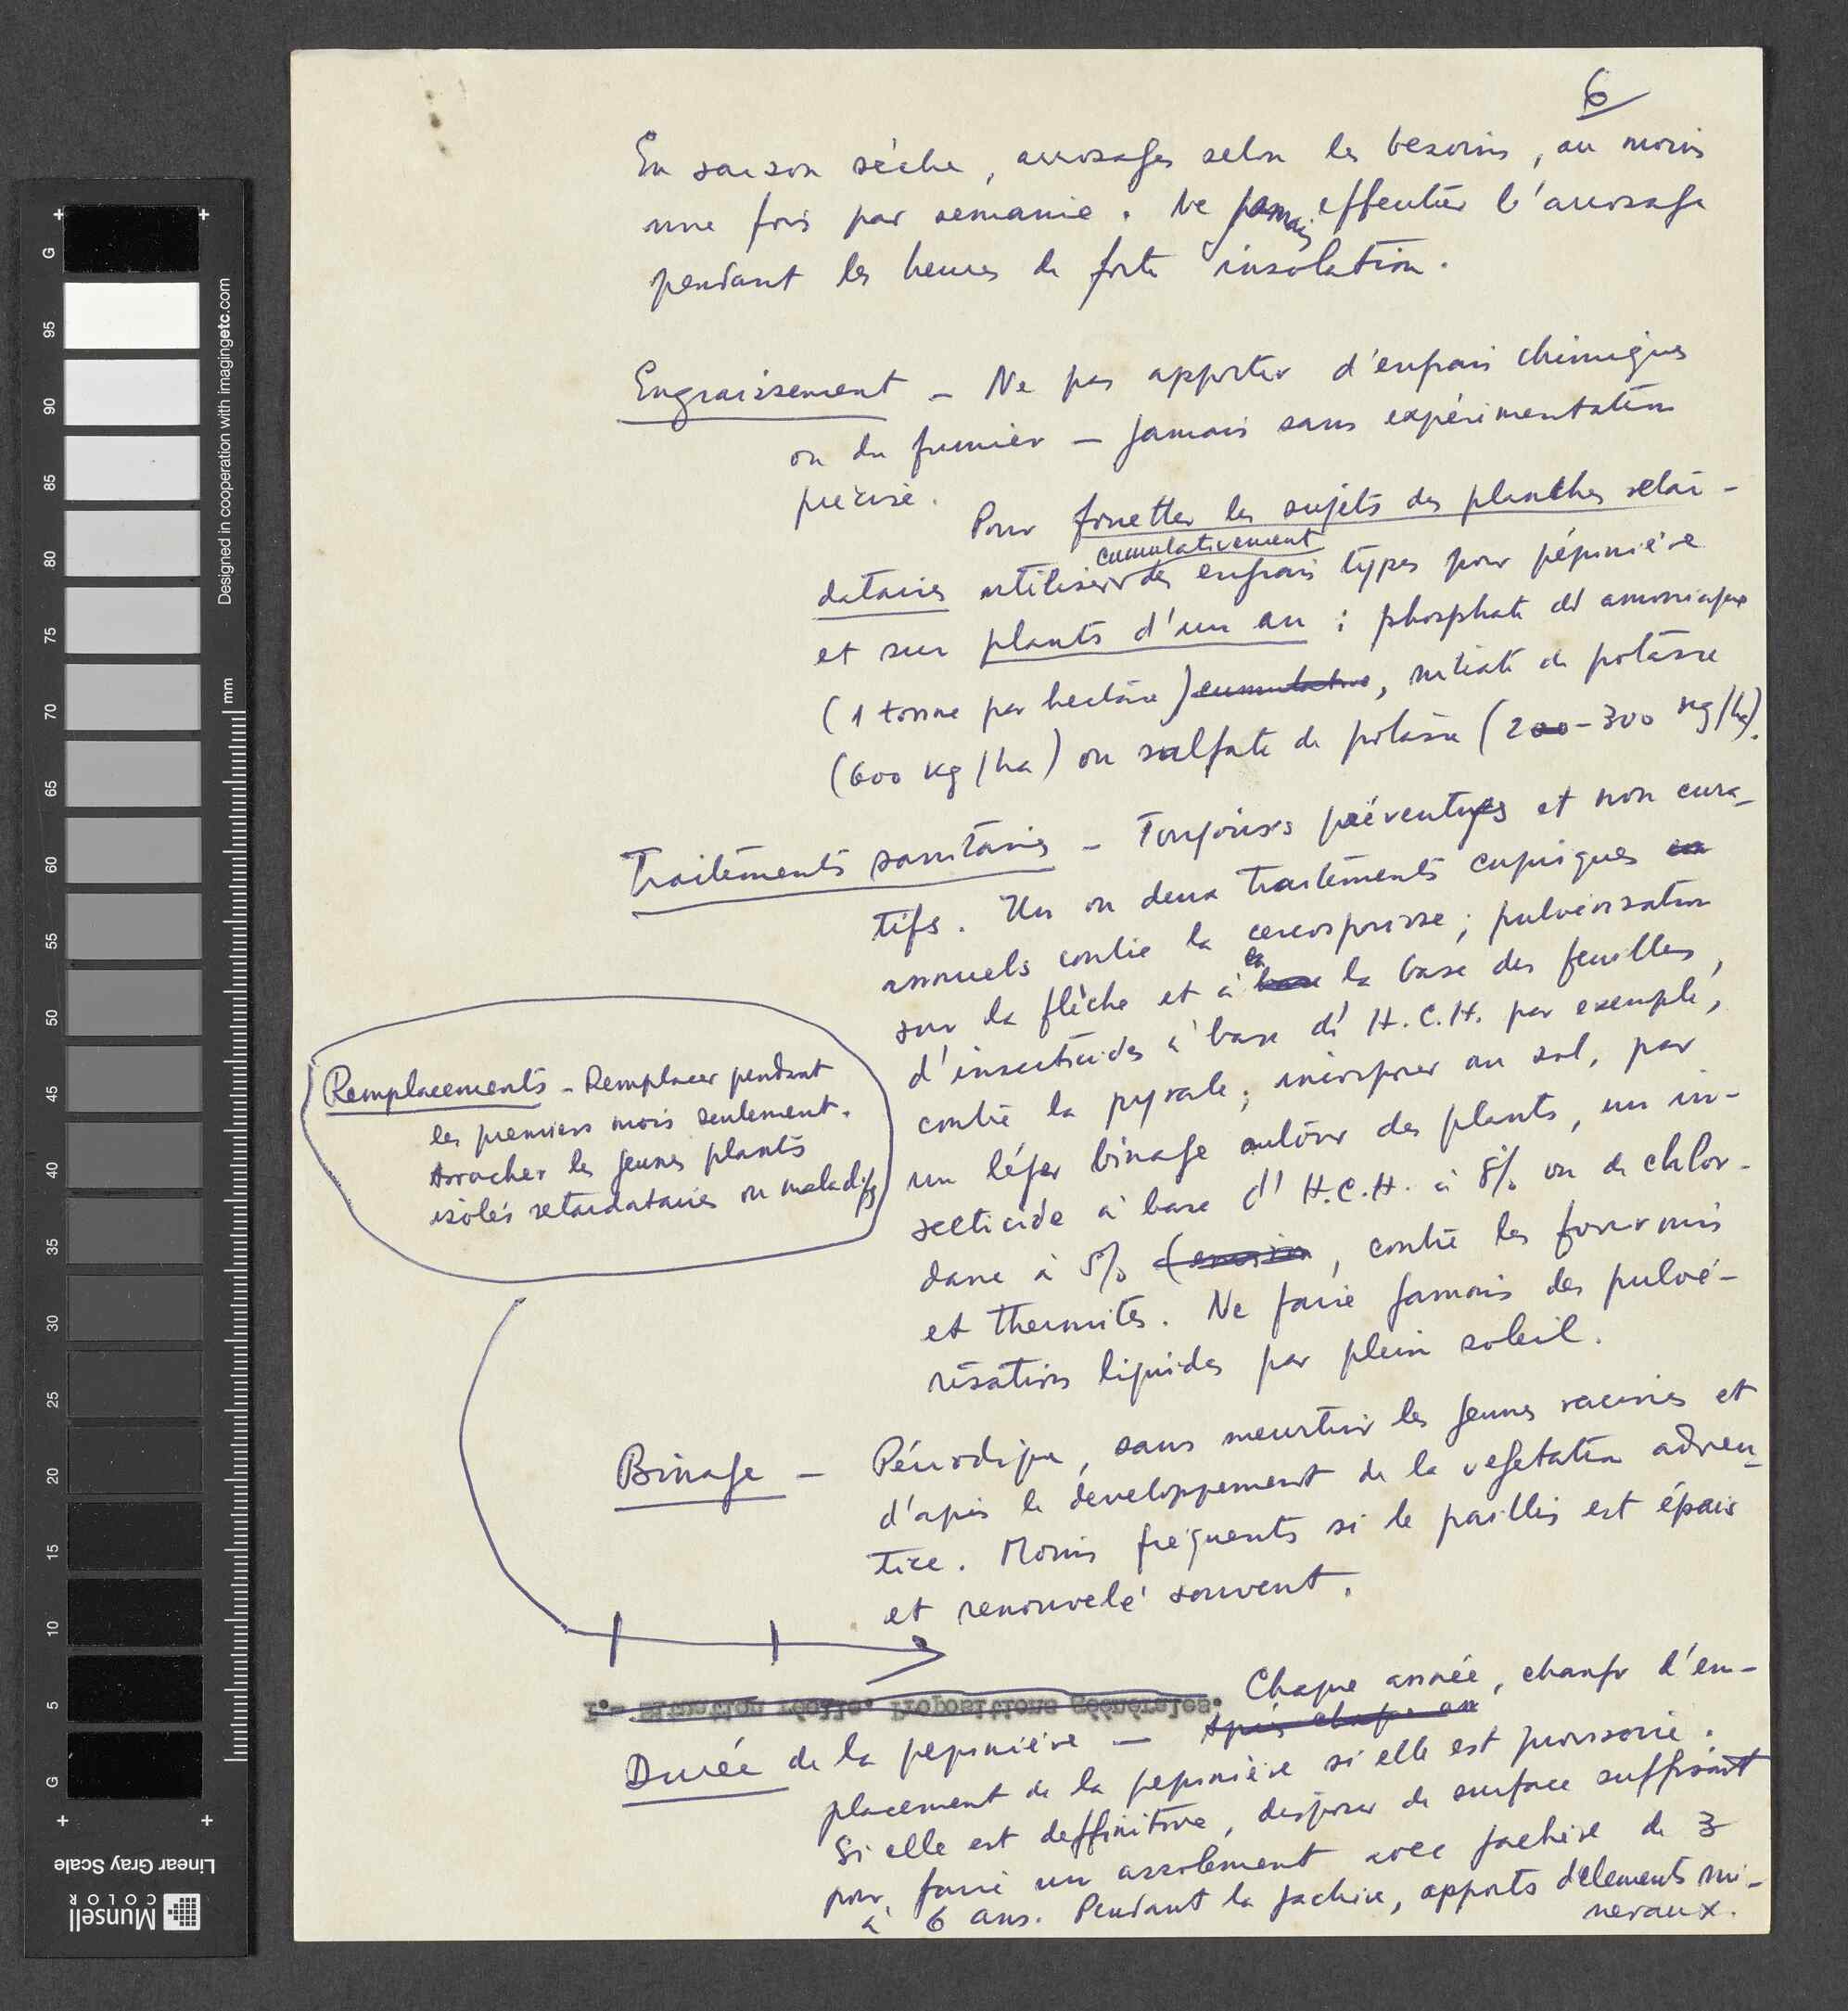 6
En saison sèche, arrosages selon les besoins, au moins
une fois par semaine. Ne jamais effectuer l'arrosage
pendant les heures de forte insolation.
Engraissement – Ne pas apporter d'engrais chimiques
ou du fumier – jamais sans expérimentation
précise.
Pour fouetter les sujets des planches retar-
cumulativement
dataires utiliser des engrais types pour pépinière
et sur plants d'un an : phosphate d'amoniaque
(1 tonne par hectare) cumulative, nitrate de potasse
(600 kg/ha) ou sulfate de potasse (200-300 kg/ha).
Traitements sanitaires – Toujours préventifs et non cura-
tifs. Un ou deux traitements cupriques
annuels contre la cercosporiose; pulvérisation
sur la flèche et à base la base des feuilles,
d'insecticides à base d'H.C.H. par exemple,
contre la pyrale; incorporer au sol, par
un léger binage autour des plants, un in-
secticide à base d'H.C.H. à 8% ou de chlor-
dane à 5% , contre les fourmis
et thermites. Ne faire jamais des pulvé-
risations liquides par plein soleil.
Remplacements – Remplacer pendant
les premiers mois seulement.
Arracher les jeunes plants
isolés retardataires ou maladifs
Binage – Périodique, sans meurtrir les jeunes racines et
d'après le developpement de la vegetation adven-
tice. Moins fréquents si le paillis est épais
et renouvelé souvent.
I.- Situation réelle. Propositions générales.
Chaque année, changer d'em-
Durée de la pepinière – Après chaque an
placement de la pepinière si elle est provisoire.
Si elle est deffinitive, disposer de surface suffisant
pour faire un assolement avec jachère de 3
à 6 ans. Pendant la jachère, apports d'elements mi-
neraux.